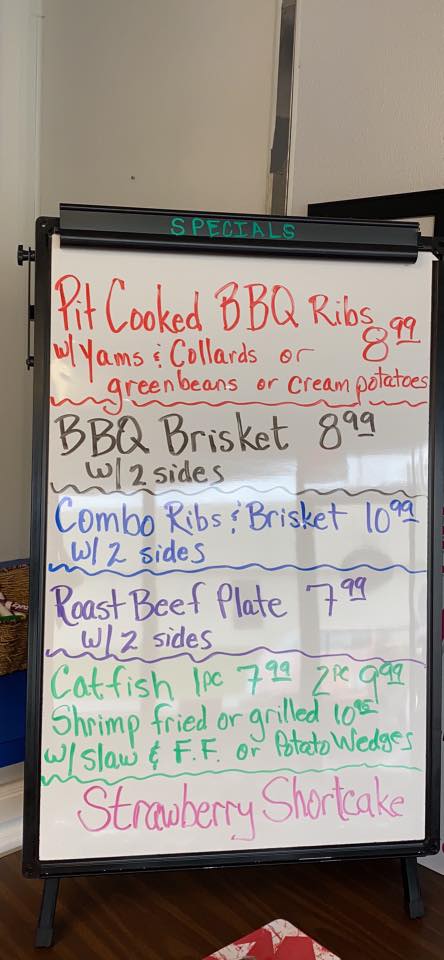 SPECIALS
Pit Cooked BBQ Ribs 8.99
w/Yams & Collards or
greenbeans or Cream potatoes
BBQ Brisket 8.99
w/2 sides
Combo Ribs & Brisket 10.99
w/2 sides
Roast Beef Plate 7.99
w/2 sides
Catfish 1pc 7.99 2pc 9.99
Shrimp fried or grilled
w/slaw & F.F. or Potato Wedges
Strawberry Shortcake